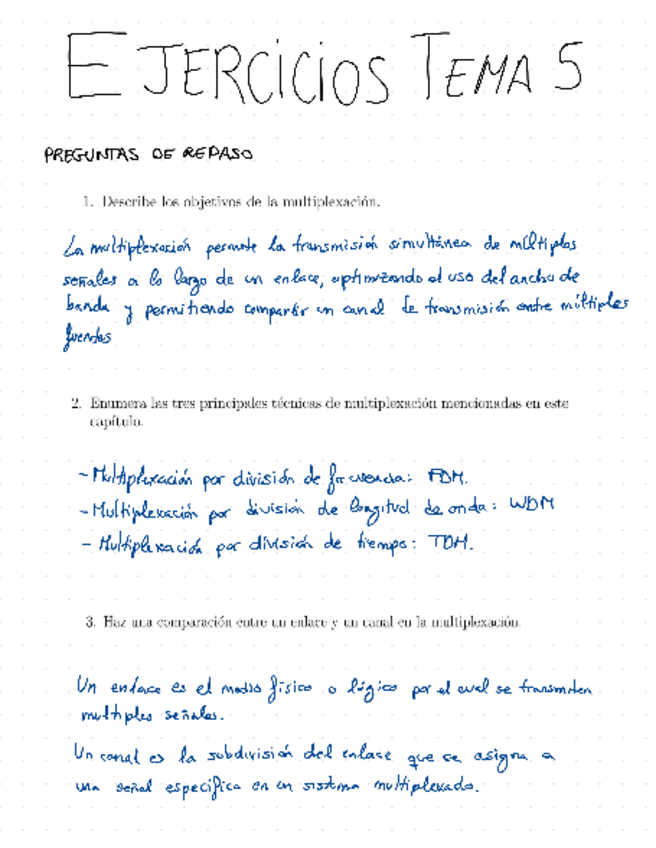 EJERCICIOS TEMA 5
PREGUNTAS DE REPASO
1. Describe los objetivos de la multiplexación.
La multiplexación permite la transmisión simultánea de múltiples
señales a lo largo de un enlace, optimizando el uso del ancho de
banda y permitiendo compartir un canal de transmisión entre múltiples
fuentes
2. Enumera las tres principales técnicas de multiplexación mencionadas en este
capítulo.
- Multiplexación por división de frecuencia: FDM.
- Multiplexación por división de longitud de onda: WDM
- Multiplexación por división de tiempo: TDM.
3. Haz una comparación entre un enlace y un canal en la multiplexación.
Un enlace es el medio físico o lógico por el cual se transmiten
multiples señales.
Un canal es la subdivisión del enlace que se asigna a
una señal específica en un sistema multiplexado.